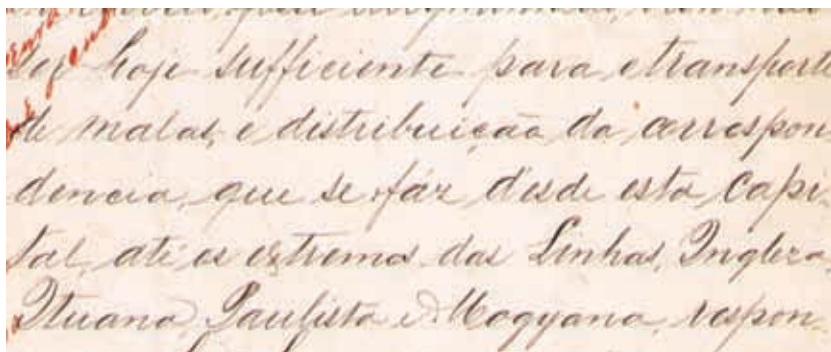 ser hoje sufficiente para o transporte
de malas, e distribuição da correspon
dencia, que se fáz desde esta Capi-
tal, até os extremos das Linhas, Ingleza,
Ituana, Paulista e Mogyana, respon-